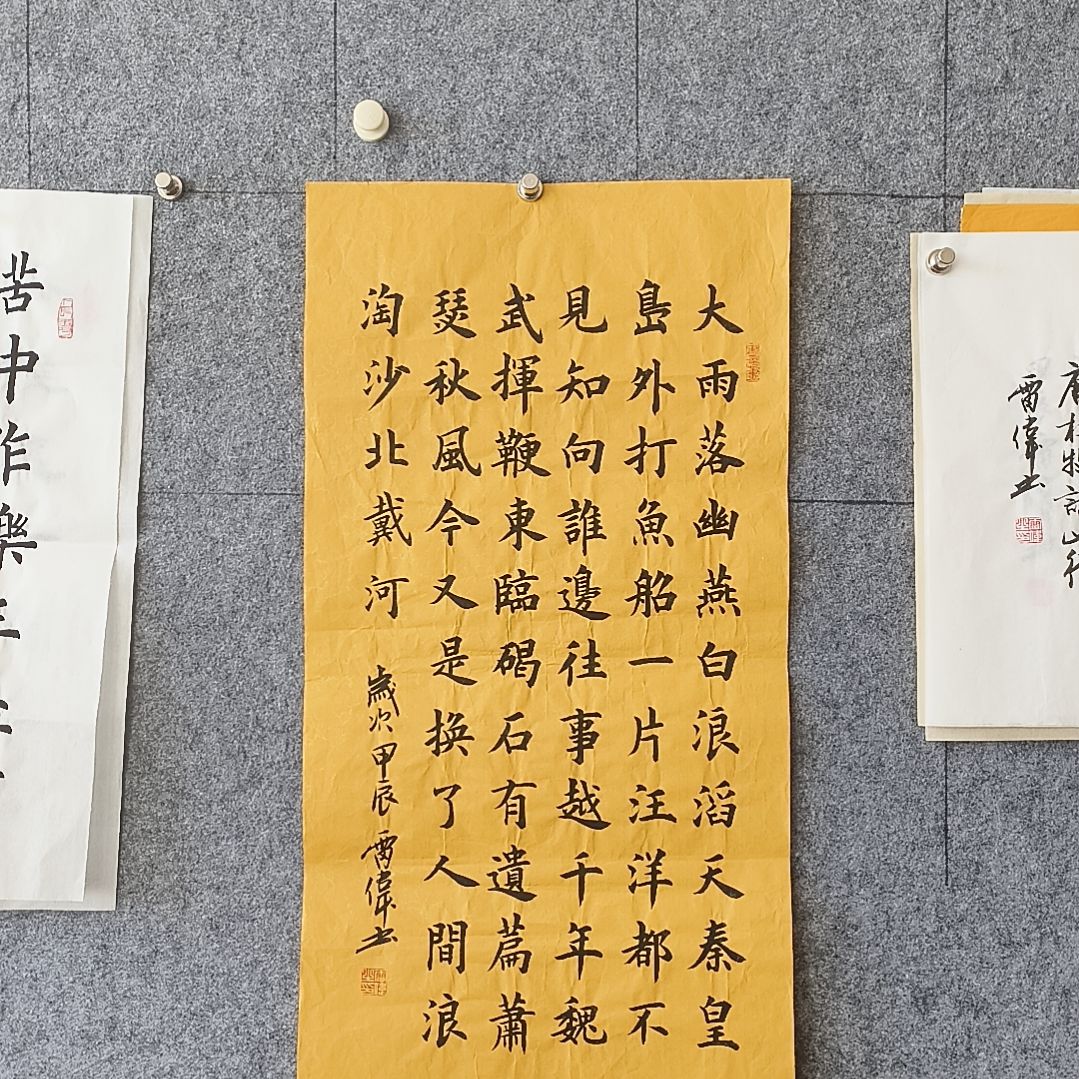 唐杜牧詩山行
雷偉书
大雨落幽燕白浪滔天秦皇
島外打魚船一片汪洋都不
見知向誰邊往事越千年魏
武揮鞭東臨碣石有遺篇蕭
瑟秋風今又是換了人間浪
淘沙北戴河
歲次甲辰雷偉书
苦中作樂三